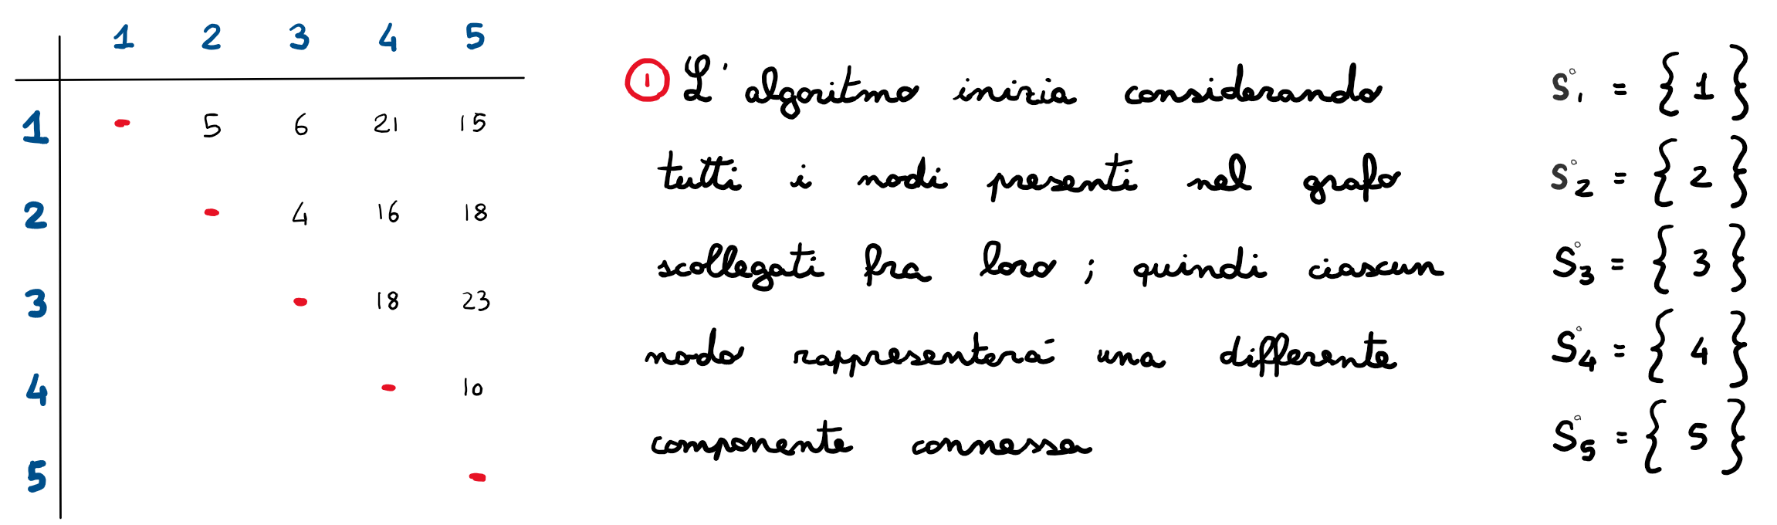 1 2 3 4 5
1 - 5 6 21 15
2 - 4 16 18
3 - 18 23
4 - 10
5 -
① L' algoritmo inizia considerando
tutti i nodi presenti nel grafo
scollegati fra loro ; quindi ciascun
nodo rappresenterà una differente
componente connessa
S°₁ = { 1 }
S°₂ = { 2 }
S°₃ = { 3 }
S°₄ = { 4 }
S°₅ = { 5 }